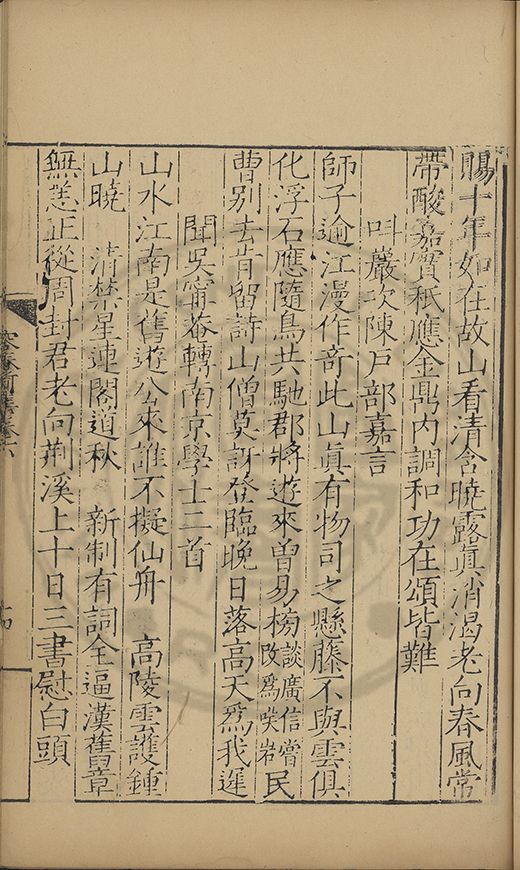 賜十年如在故山看清含曉露眞消渴老向春風常
帶酸嘉實秪應金鼎內調和功在頌皆難
叫巖次陳戶部嘉言
師子逾江漫作奇此山眞有物司之懸藤不與雲俱
化浮石應隨鳥共馳郡將遊來曾易榜談廣信嘗改爲咲岩民
曹別去肯留詩山僧莫訝登臨晚日落高天爲我遲
聞吳甯菴轉南京學士二首
山水江南是舊遊公來誰不擬仙舟 高陵雲護鍾
山曉 清禁星連閣道秋 新制有詞全逼漢舊章
無恙正從周封君老向荆溪上十日三書慰白頭